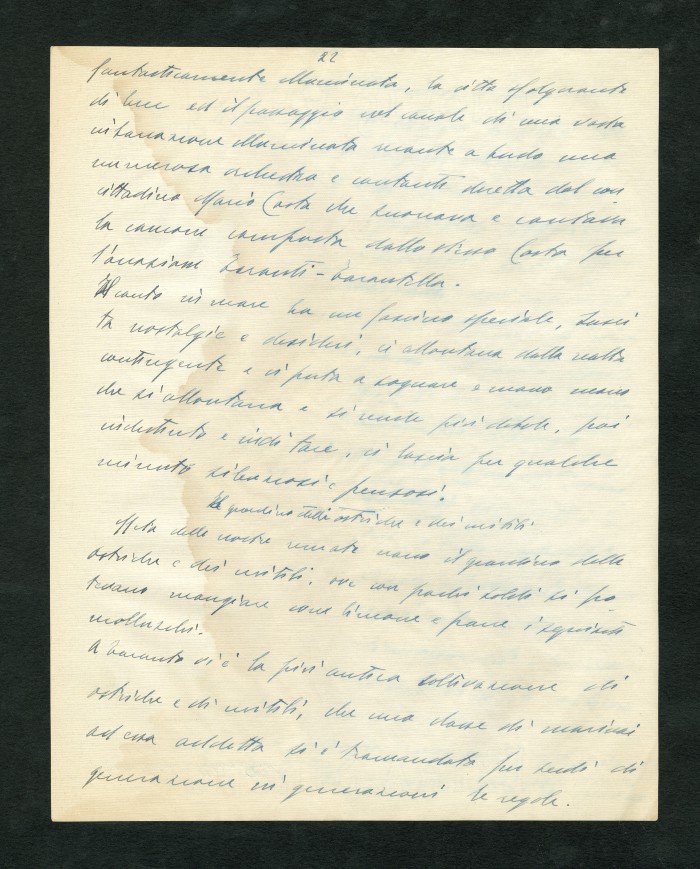 22
fantasticamente illuminata, la città sfolgorante
di luce ed il passaggio nel canale di una vasta
illuminata a
numerosa orchestra e cantanti diretta dal con
cittadino Mario Costa che suonava e cantava
la canzone composta dallo stesso Costa per
l'occasione Taranti-Tarantella.
Il canto in mare ha un fascino speciale, susci
ta nostalgie e desideri, ci allontana dalla realtà
contingente e ci porta a sognare e mano mano
che si allontana e si rende più debole, poi
indistinto e indi tace, ci lascia per qualche
minuto silenziosi e pensosi.
Il giardino delle ostriche e dei mitili
Meta delle nostre remate erano il giardino delle
ostriche e dei mitili, ove con pochi soldi si po
tevano mangiare con limone e pane i squisiti
molluschi.
A Taranto vi è la più antica coltivazione di
ostriche e di mitili, che una classe di marinai
ad essa addetta si è tramandata per secoli di
generazione in generazioni le regole.